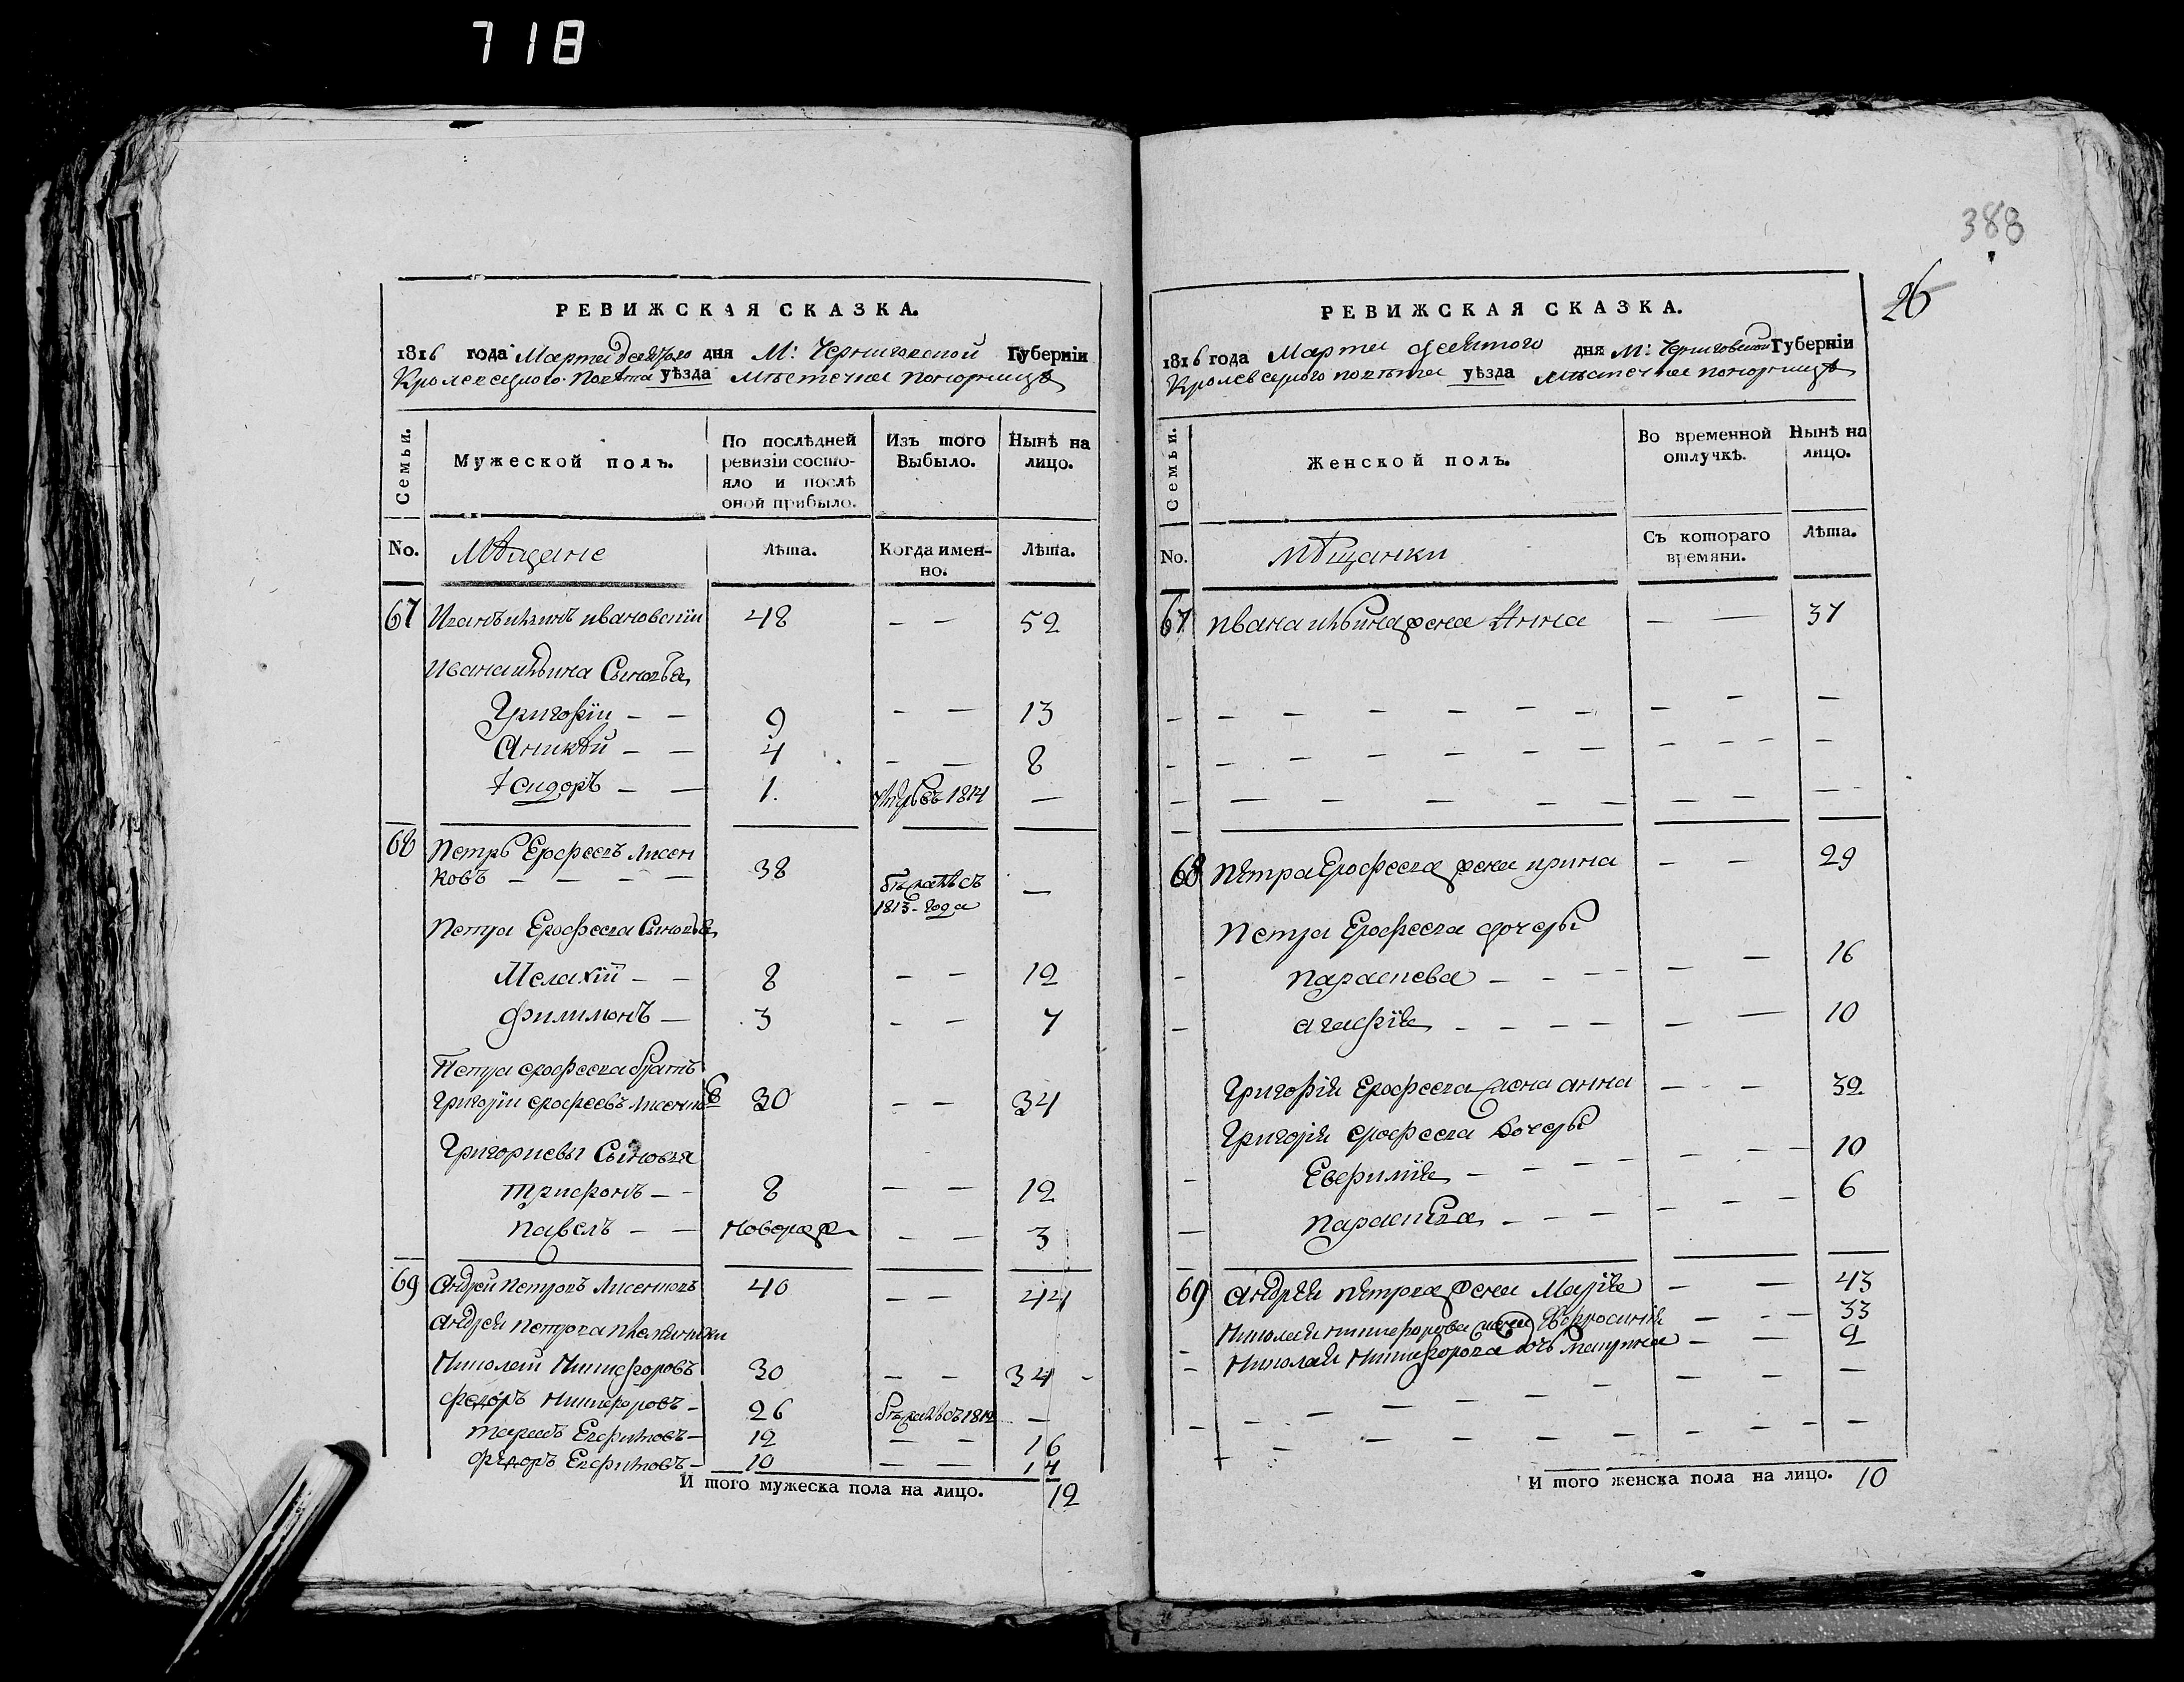 718
388
26
РЕВИЖСКАЯ СКАЗКА.
1816 года Марта десятого дня М: Черниговской Губерніи
Кролевецкого Повѣта уѣзда Мѣстечка Понорницѣ
Семьи.
Мужеской полъ.
По послѣдней ревизіи состояло и послѣ оной прибыло.
Изъ того Выбыло.
Нынѣ на лицо.
No. Мѣщане Лѣта. Когда именно. Лѣта.
67 Иванъ Ивановскіи 48 — — 52
Ивана Сыновья
Григорій — — 9 — — 13
Аникѣй — — 4 — — 8
Сидоръ — — 1. 1814 —
68 Петръ Ерофеевъ Лисен
ковъ — — — — 38 бѣгахъ съ
1813 года —
Петра Ерофеева Сыновья
Мелахій — — 8 — — 12
Филимонъ — 3 — — 7
Петра Ерофеева братъ
Григоріи Ерофеевъ 30 — — 34
Григориевы Сыновья
Трифонъ — - 8 — — 12
Павелъ — — Новорож — — 3
69 Андрей Петровъ Лисенковъ 40 — — 44
Андрея Петрова племянники
Николай Никифоровъ 30 — — 34 -
Федоръ Никифоровъ - 26 бѣгахъ съ 1812 —
Тарасъ Евфимовъ — 12 — — 16
Федоръ Евфимовъ - 10 — — 14
И того мужеска пола на лицо. 12
РЕВИЖСКАЯ СКАЗКА.
1816 года Марта десятого дня М: Черниговской Губерніи
Кролевецкого повѣта уѣзда Мѣстечка Понорницѣ
Семьи.
Женской полъ.
Во временной отлучкѣ.
Нынѣ на лицо.
No. Мѣщанки Съ котораго времяни. Лѣта.
67 Ивана жена Анна — — 37
68 Петра Ерофеева жена Ирина — — 29
Петра Ерофеева дочеры
Параскева — — — — 16
Агафія — — — — 10
Григорія Ерофеева жена Анна — — 32
Григорія Ерофеева дочеры
Евфимія — — — — 10
Параскева — — — — 6
69 Андрея Петрова жена Марія — — 43
Николая Никифорова жена Ефросинія — — 33
Николая Никифорова дочь — — 2
И того женска пола на лицо. 10